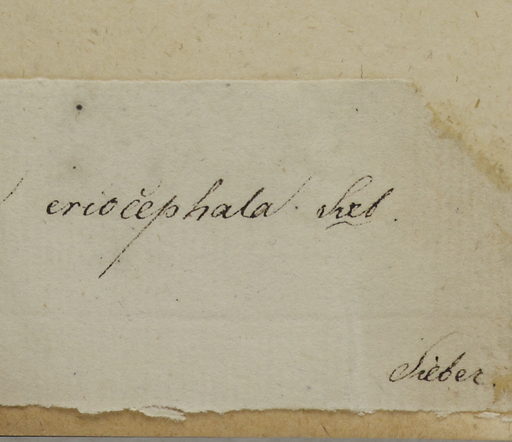 eriocephala Sieb.
Sieber.